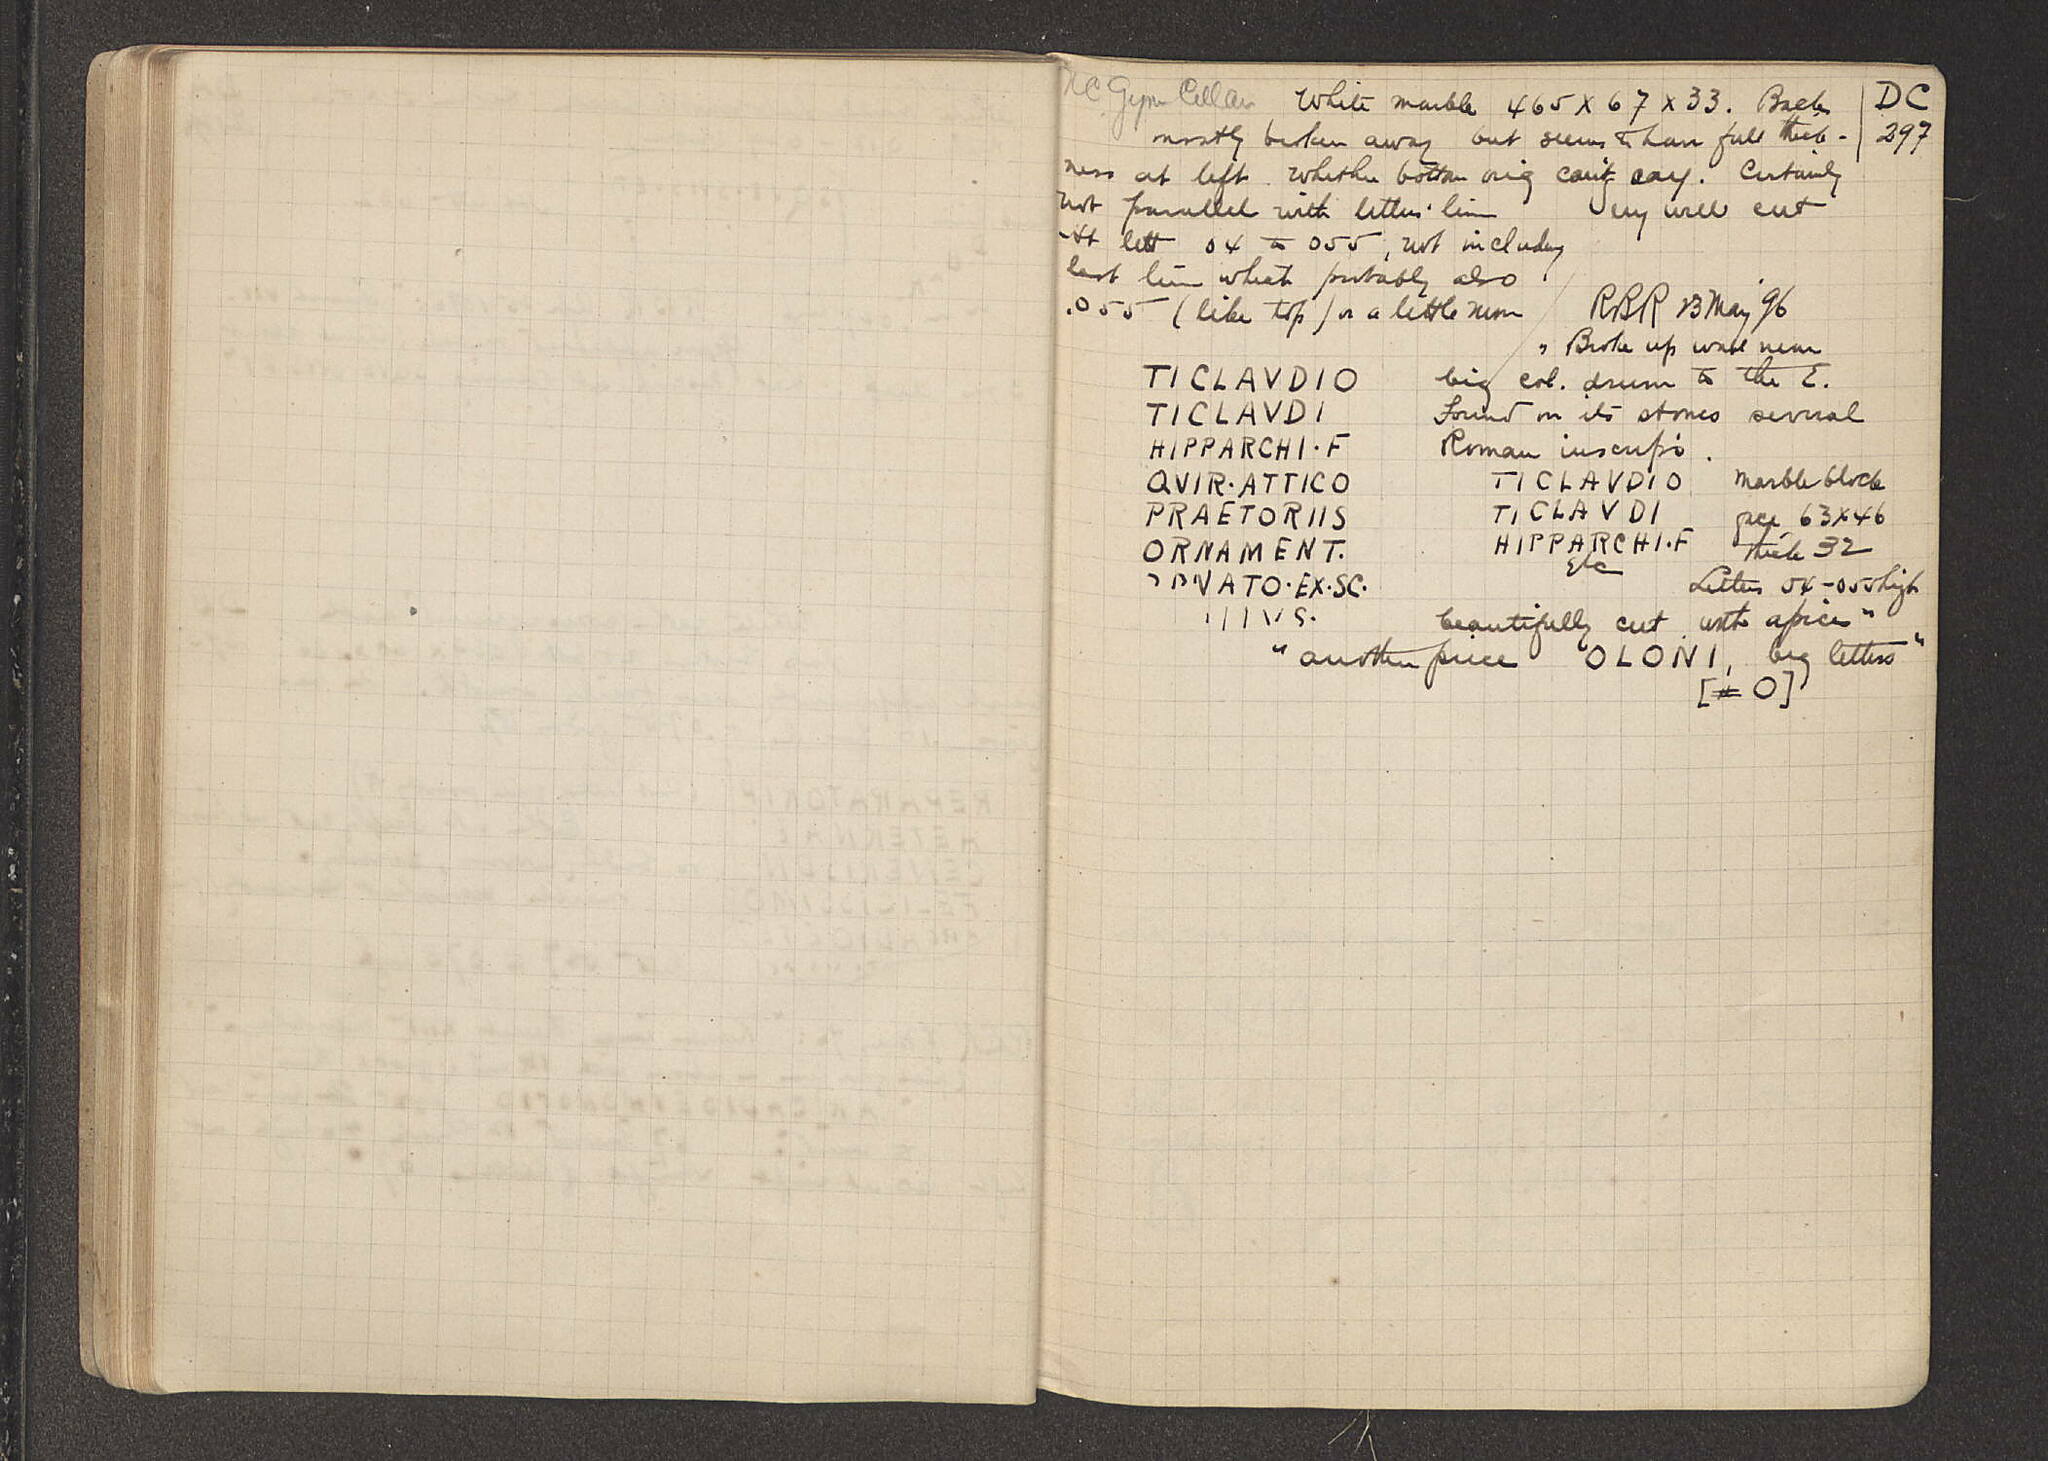 NC Gym Cellar White marble 465 x 67 x 33. Back
DC
297
mostly broken away but seems to have full thick-
ness at left. Whether bottom orig can't say. Certainly
not parallel with letters' line Very well cut
Ht lett 04 to 055, not including
last line which probably also
.055 (like top) or a little more RBR 23 May 96
" Broke up wall near
TICLAVDIO big col. drum to the E.
TICLAVDI Found on its stones several
HIPPARCHI·F Roman inscrip's.
QVIR·ATTICO TICLAVDIO marble block
PRAETORIIS TICLAVDI pce 63x46
ORNAMENT. HIPPARCHI·F thick 32
etc
NATO·EX·SC. Letters 04-055 high
VS. beautifully cut with apices"
"another piece OLONI, big letters"
[≠ O]